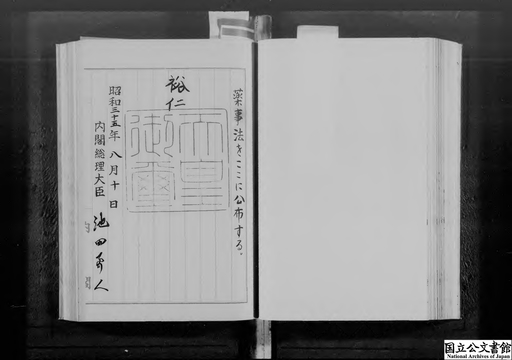 薬事法をここに公布する。
裕仁
天皇
御璽
昭和三十五年八月十日
内閣総理大臣 池田勇人
国立公文書館
National Archives of Japan